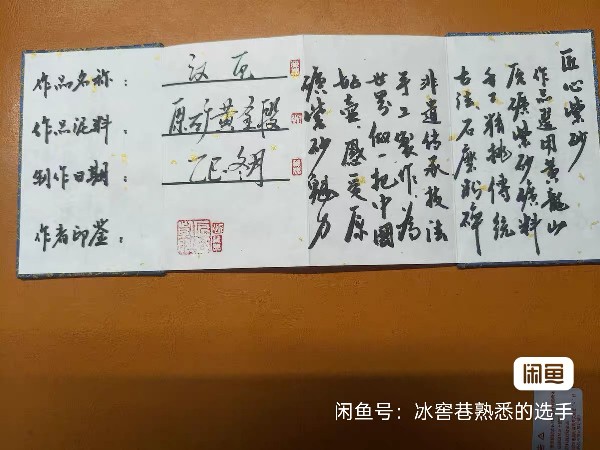 作品名称：汉瓦
作品泥料：原矿黄金段
制作日期：乙巳.冬月
作者印鉴：
匠心紫砂
作品選用黄龍山
原礦紫砂礦料
手工精挑傳統
古法石磨粉碎
非遗傳承技法
手工製作.为
世界做一把中國
好壶.感受原
礦紫砂魅力
闲鱼
闲鱼号：冰窖巷熟悉的选手